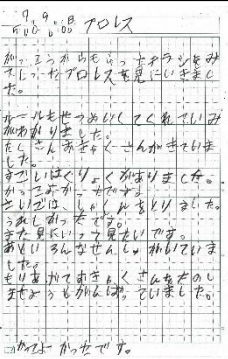 7、9、日 プロレス
がっこうからもらったチラシをみ
てしったプロレスを見にいきまし
た。
ルールもせつめいしてくれていみ
がわかりました。
たくさんおきゃくさんがきていま
した。
すごいはくりょくがありました。
かっこよかったです。
さいごは、しゃしんをとりました。
うれしかったです。
また見にいって見たいです。
あといろんなせんしゅがいていま
した。
もりあげておきゃくさんをたのし
ませようとがんばっていました。
かってよかったです。